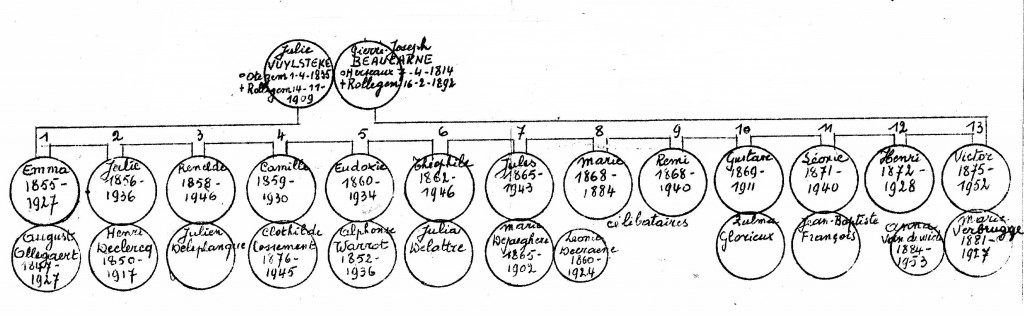 Julie
VUYLSTEKE
° Otegem 1-4-1835
+ Rollegem 14-11-
1909
Pierre-Joseph
BEAUCARNE
° Herseaux 7-4-1814
+ Rollegem 16-2-1892
1 2 3 4 5 6 7 8 9 10 11 12 13
Emma
1855-
1927
Julie
1856-
1936
Renelde
1858-
1946
Camille
1859-
1930
Eudoxie
1860-
1934
Théophile
1862-
1946
Jules
1865-
1943
Marie
1868-
1884
Remi
1868-
1940
Gustave
1869-
1911
Léonie
1871-
1940
Henri
1872-
1928
Victor
1875-
1952
célibataires
August
Ollegaert
1847-
1927
Henri
Declercq
1850-
1917
Julien
Deleplanque
Clothilde
Cossement
1876-
1945
Alphonse
Warrot
1852-
1936
Julia
Delattre
Marie
Depaeghere
1865-
1902
Leonie
Decraene
1860-
1924
Zulma
Glorieux
Jean-Baptiste
François
1884-
1953
Marie
Verbrugge
1881-
1927